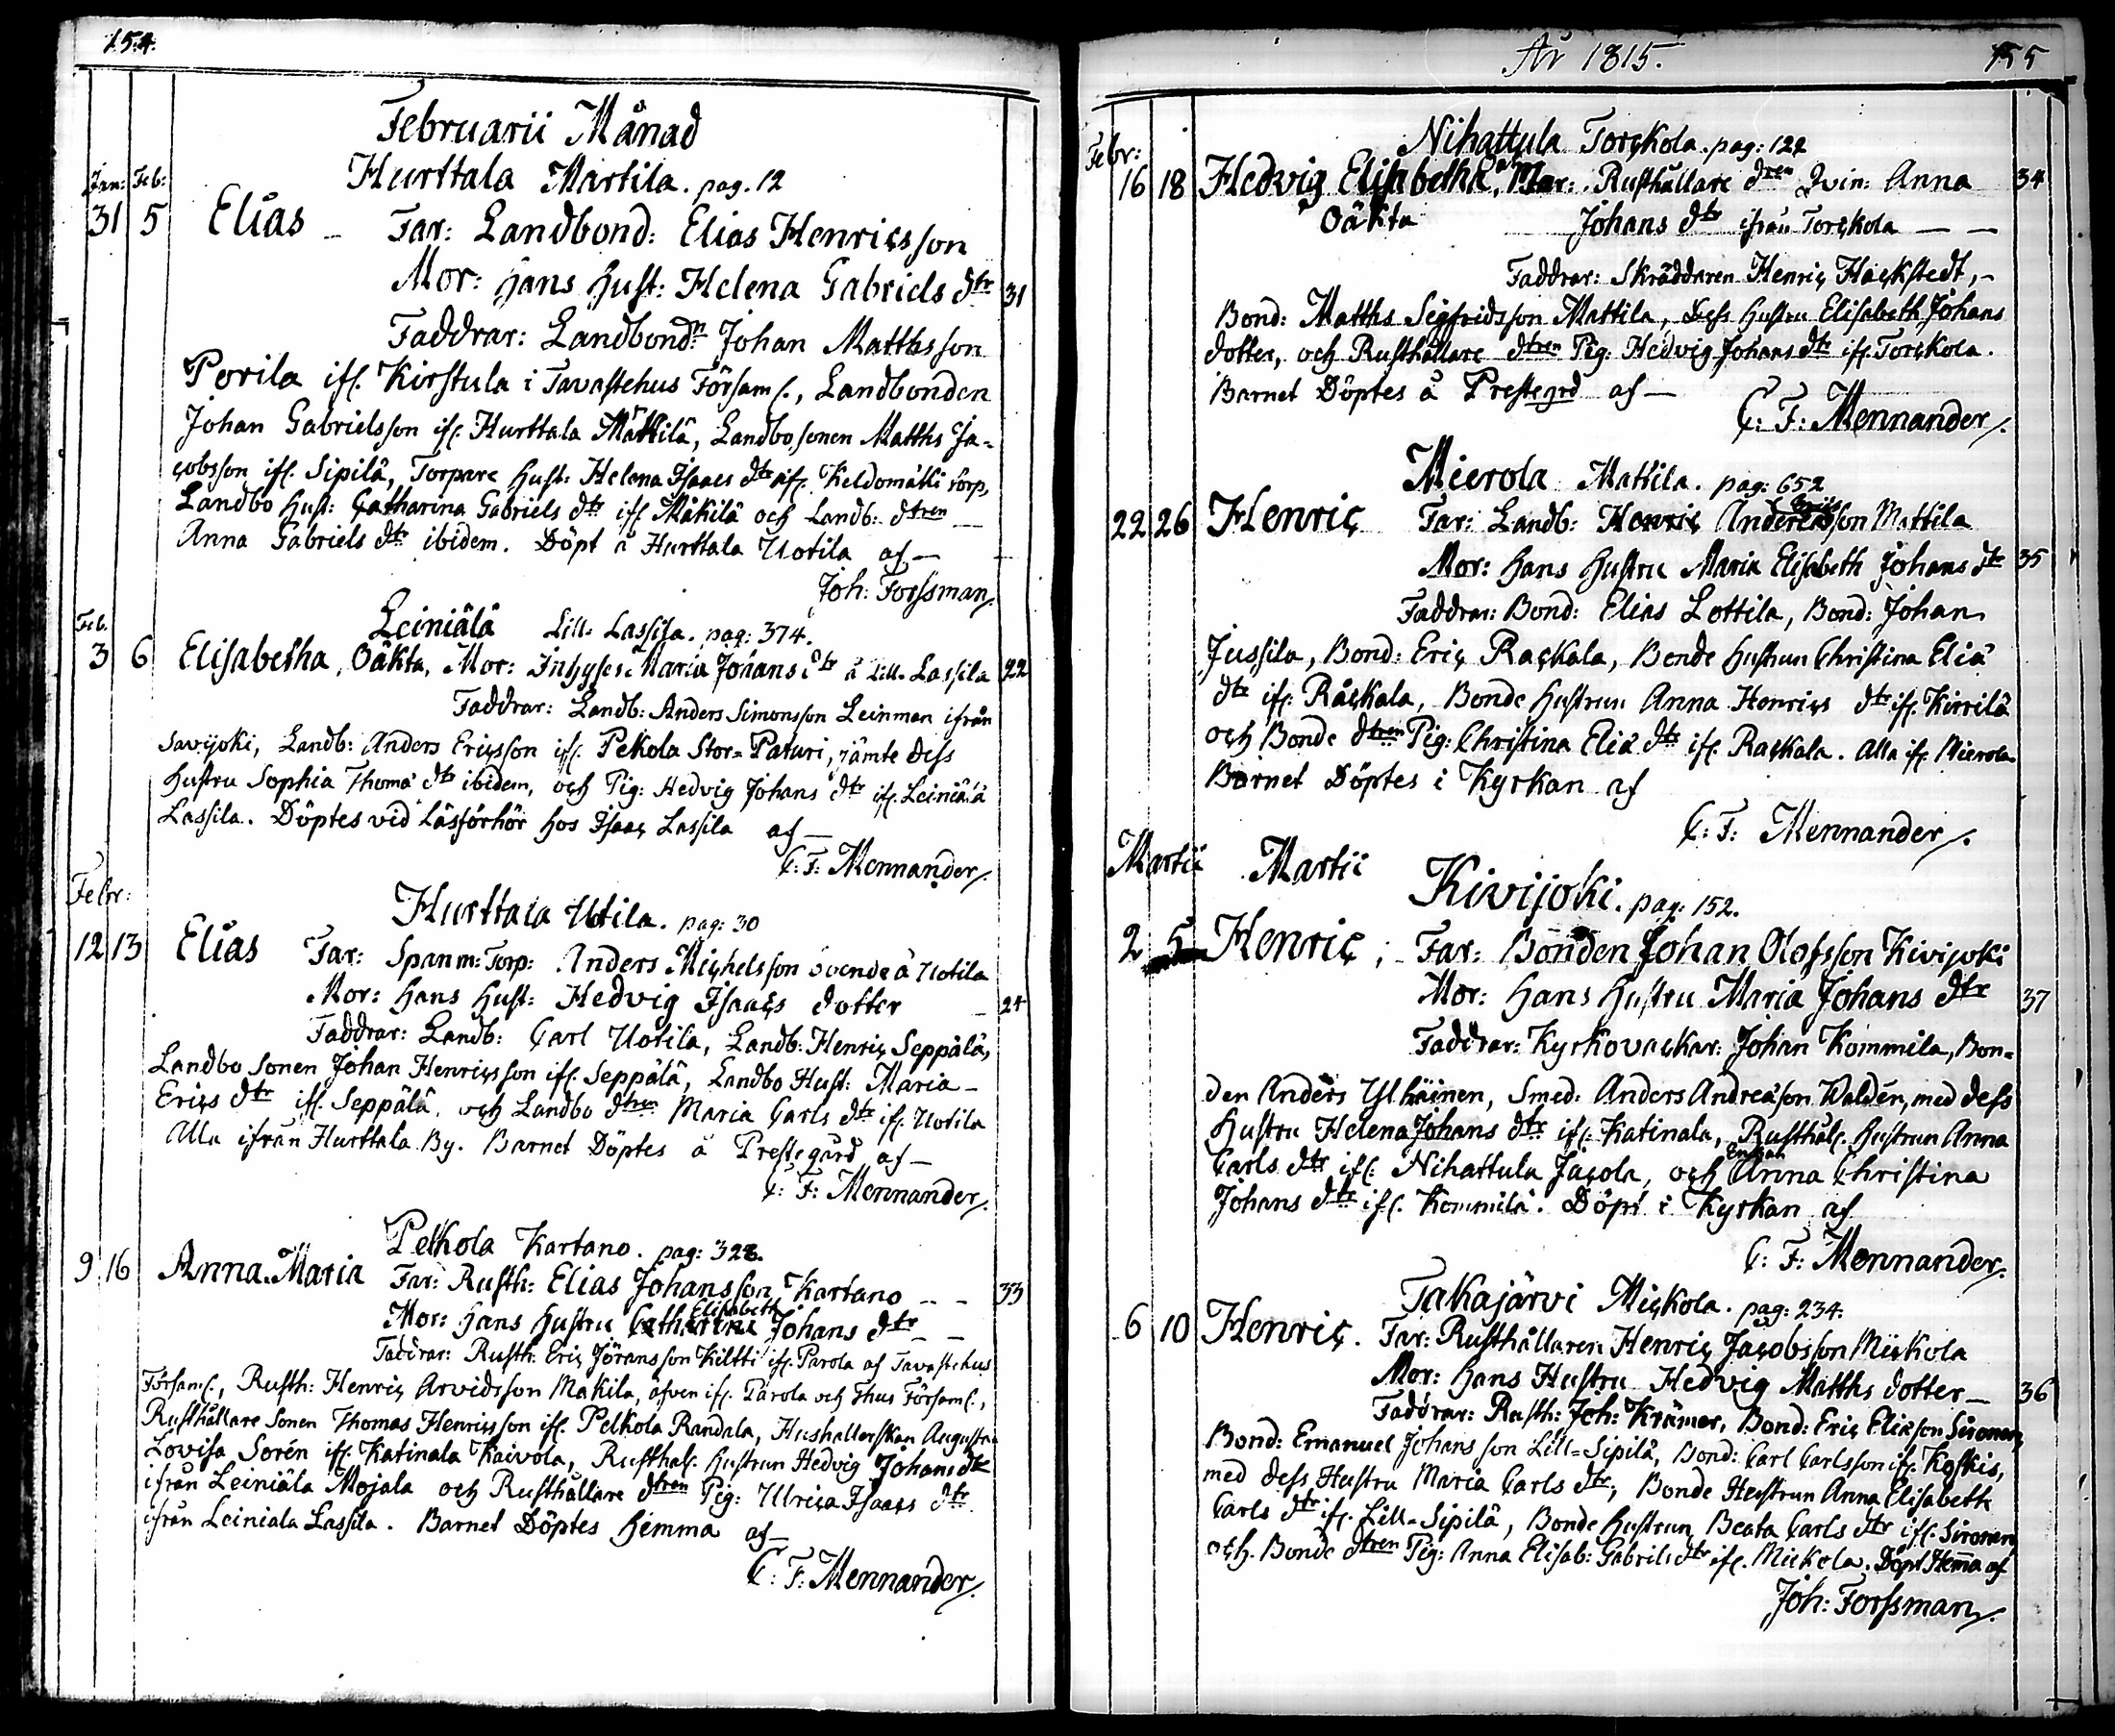 154.
Februarii Månad
Hurttala Martila. pag. 12
Jan: Feb:
31 5 Elias _ Far: Landbond: Elias Henricsson
Mor: Hans Hust: Helena Gabriels dtr 31
Faddrar: Landbondn Johan Matthsson
Porila ifr. Kirstula i Tavastehus Församl., Landbonden
Johan Gabrielsson ifr. Hurttala Mäkilä, Landbosonen Matths Ja-
cobsson ifr. Sipilä, Torpare Hust: Helena Isaacs dtr ifr. Keldomäki torp,
Landbo Hust: Catharina Gabriels dtr ifr. Mäkilä och Landb: dtren _
Anna Gabriels dtr ibidem. Döpt å Hurttala Uotila af _
Joh: Forssman/.
Feb.
Leiniälä Lill-Lassila. pag: 374.
3 6 Elisabetha, Oäkta, Mor: Inhyses: Maria Johans dtr å Lill-Lassila 22
Faddrar: Landb: Anders Simonsson Leinman ifrån
Savijoki, Landb: Anders Ericsson ifr. Pelkola Stor=Paturi, jämte dess
Hustru Sophia Thomæ dtr ibidem, och Pig: Hedvig Johans dtr ifr. Leiniälä
Lassila. Döptes vid Läsförhör hos Isaac Lassila af _
C: F: Mennander/.
Febr:
Hurttala Uotila. pag: 30
12 13 Elias Far: Spanm: Torp: Anders Michelsson Svende å Uotila
Mor: Hans Hust: Hedvig Isaacs dotter _ 24
Faddrar: Landb: Carl Uotila, Landb: Henric Seppälä,
Landbo Sonen Johan Henricsson ifr. Seppälä, Landbo Hust: Maria _
Erics dtr ifr. Seppälä, och Landbo dtren Maria Carls dtr ifr. Uotila
Alla ifrån Hurttala By. Barnet Döptes å Prestegård af _
C: F: Mennander/.
Pelkola Kartano. pag: 328.
9 16 Anna Maria Far: Rusth: Elias Johansson Kartano _ _ 33
Elisabeth
Mor: Hans Hustru Catharina Johans dtr _ _
Faddrar: Rusth: Eric Jöransson Kiltti ifr. Parola af Tavastehus
Församl., Rusth: Henric Arvidsson Mäkilä, äfven ifr. Parola och Thus Församl.,
Rusthållare Sonen Thomas Henricsson ifr. Pelkola Randala, Hushållerskan Augusta
Lovisa Sorén ifr. Katinala Kaivola, Rusthål. Hustrun Hedvig Johans dtr
ifrån Leiniäla Mojala och Rusthållare dtren Pig: Ulrica Isaacs dtr
ifrån Leiniala Lassila. Barnet Döptes Hemma af _
C: F: Mennander/.
År 1815. 155
Nihattula Torckola. pag: 122
Febr:
16 18 Hedvig Elisabetha, Mor: Rusthållare dtren Qvin: Anna 34
Oäkta Johans dtr ifrån Torckola _ _
Faddrar: Skräddaren Henric Hackstedt, _
Bond: Matths Sigfridsson Mattila, dess Hustru Elisabeth Johans
dotter, och Rusthållare dtren Pig: Hedvig Johans dtr ifr. Torckola.
Barnet Döptes å Prestegrd af _
C: F: Mennander/.
Mierola Mattila. pag: 652
22 26 Henric Far: Landb: Henric Andersson Mattila
Mor: Hans Hustru Maria Elisabeth Johans dtr 35
Faddrar: Bond: Elias Lottila, Bond: Johan
Jussila, Bond: Eric Rackala, Bonde Hustrun Christina Eliæ
dtr ifr. Råckala, Bonde Hustrun Anna Henrics dtr ifr. Kirrilä
och Bonde dtren Pig: Christina Eliæ dtr ifr. Rackala. Alla ifr. Mierola
Barnet Döptes i Kyrkan af
C: F: Mennander/.
Martii Martii
Kivijoki. pag: 152.
2 5 Henric, Far: Bonden Johan Olofsson Kivijoki
Mor: Hans Hustru Maria Johans dtr 37
Faddrar: Kyrkovackar: Johan Kommila, Bon=
den Anders Ylhäinen, Smed: Anders Andreæson Waldén, med dess
Hustru Helena Johans dtr ifr. Katinala, Rusthål. Hustrun Anna
Carls dtr ifr. Nihattula Jacola, och Enkan Anna Christina
Johans dtr ifr. Kommila. Döpt i Kyrkan af
C: F: Mennander/.
Takajärvi Mickola. pag: 234.
6 10 Henric. Far: Rusthållaren Henric Jacobsson Mickola
Mor: Hans Hustru Hedvig Matths dotter _ 36
Faddrar: Rusth: Joh: Krämer, Bond: Eric Eliæson Sironen,
Bond: Emanuel Johansson Lill=Sipilä, Bond: Carl Carlsson ifr. Koskis,
med dess Hustru Maria Carls dtr, Bonde Hustrun Anna Elisabeth
Carls dtr ifr. Lill=Sipilä, Bonde Hustrun Beata Carls dtr ifr. Sironen,
och Bonde dtren Pig: Anna Elisab: Gabriels dtr ifr. Mickola. Döpt Hema af
Joh: Forssman/.